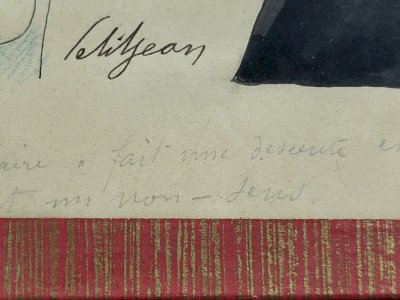 Petitjean
aire a fait une descente en
est un non-sens.